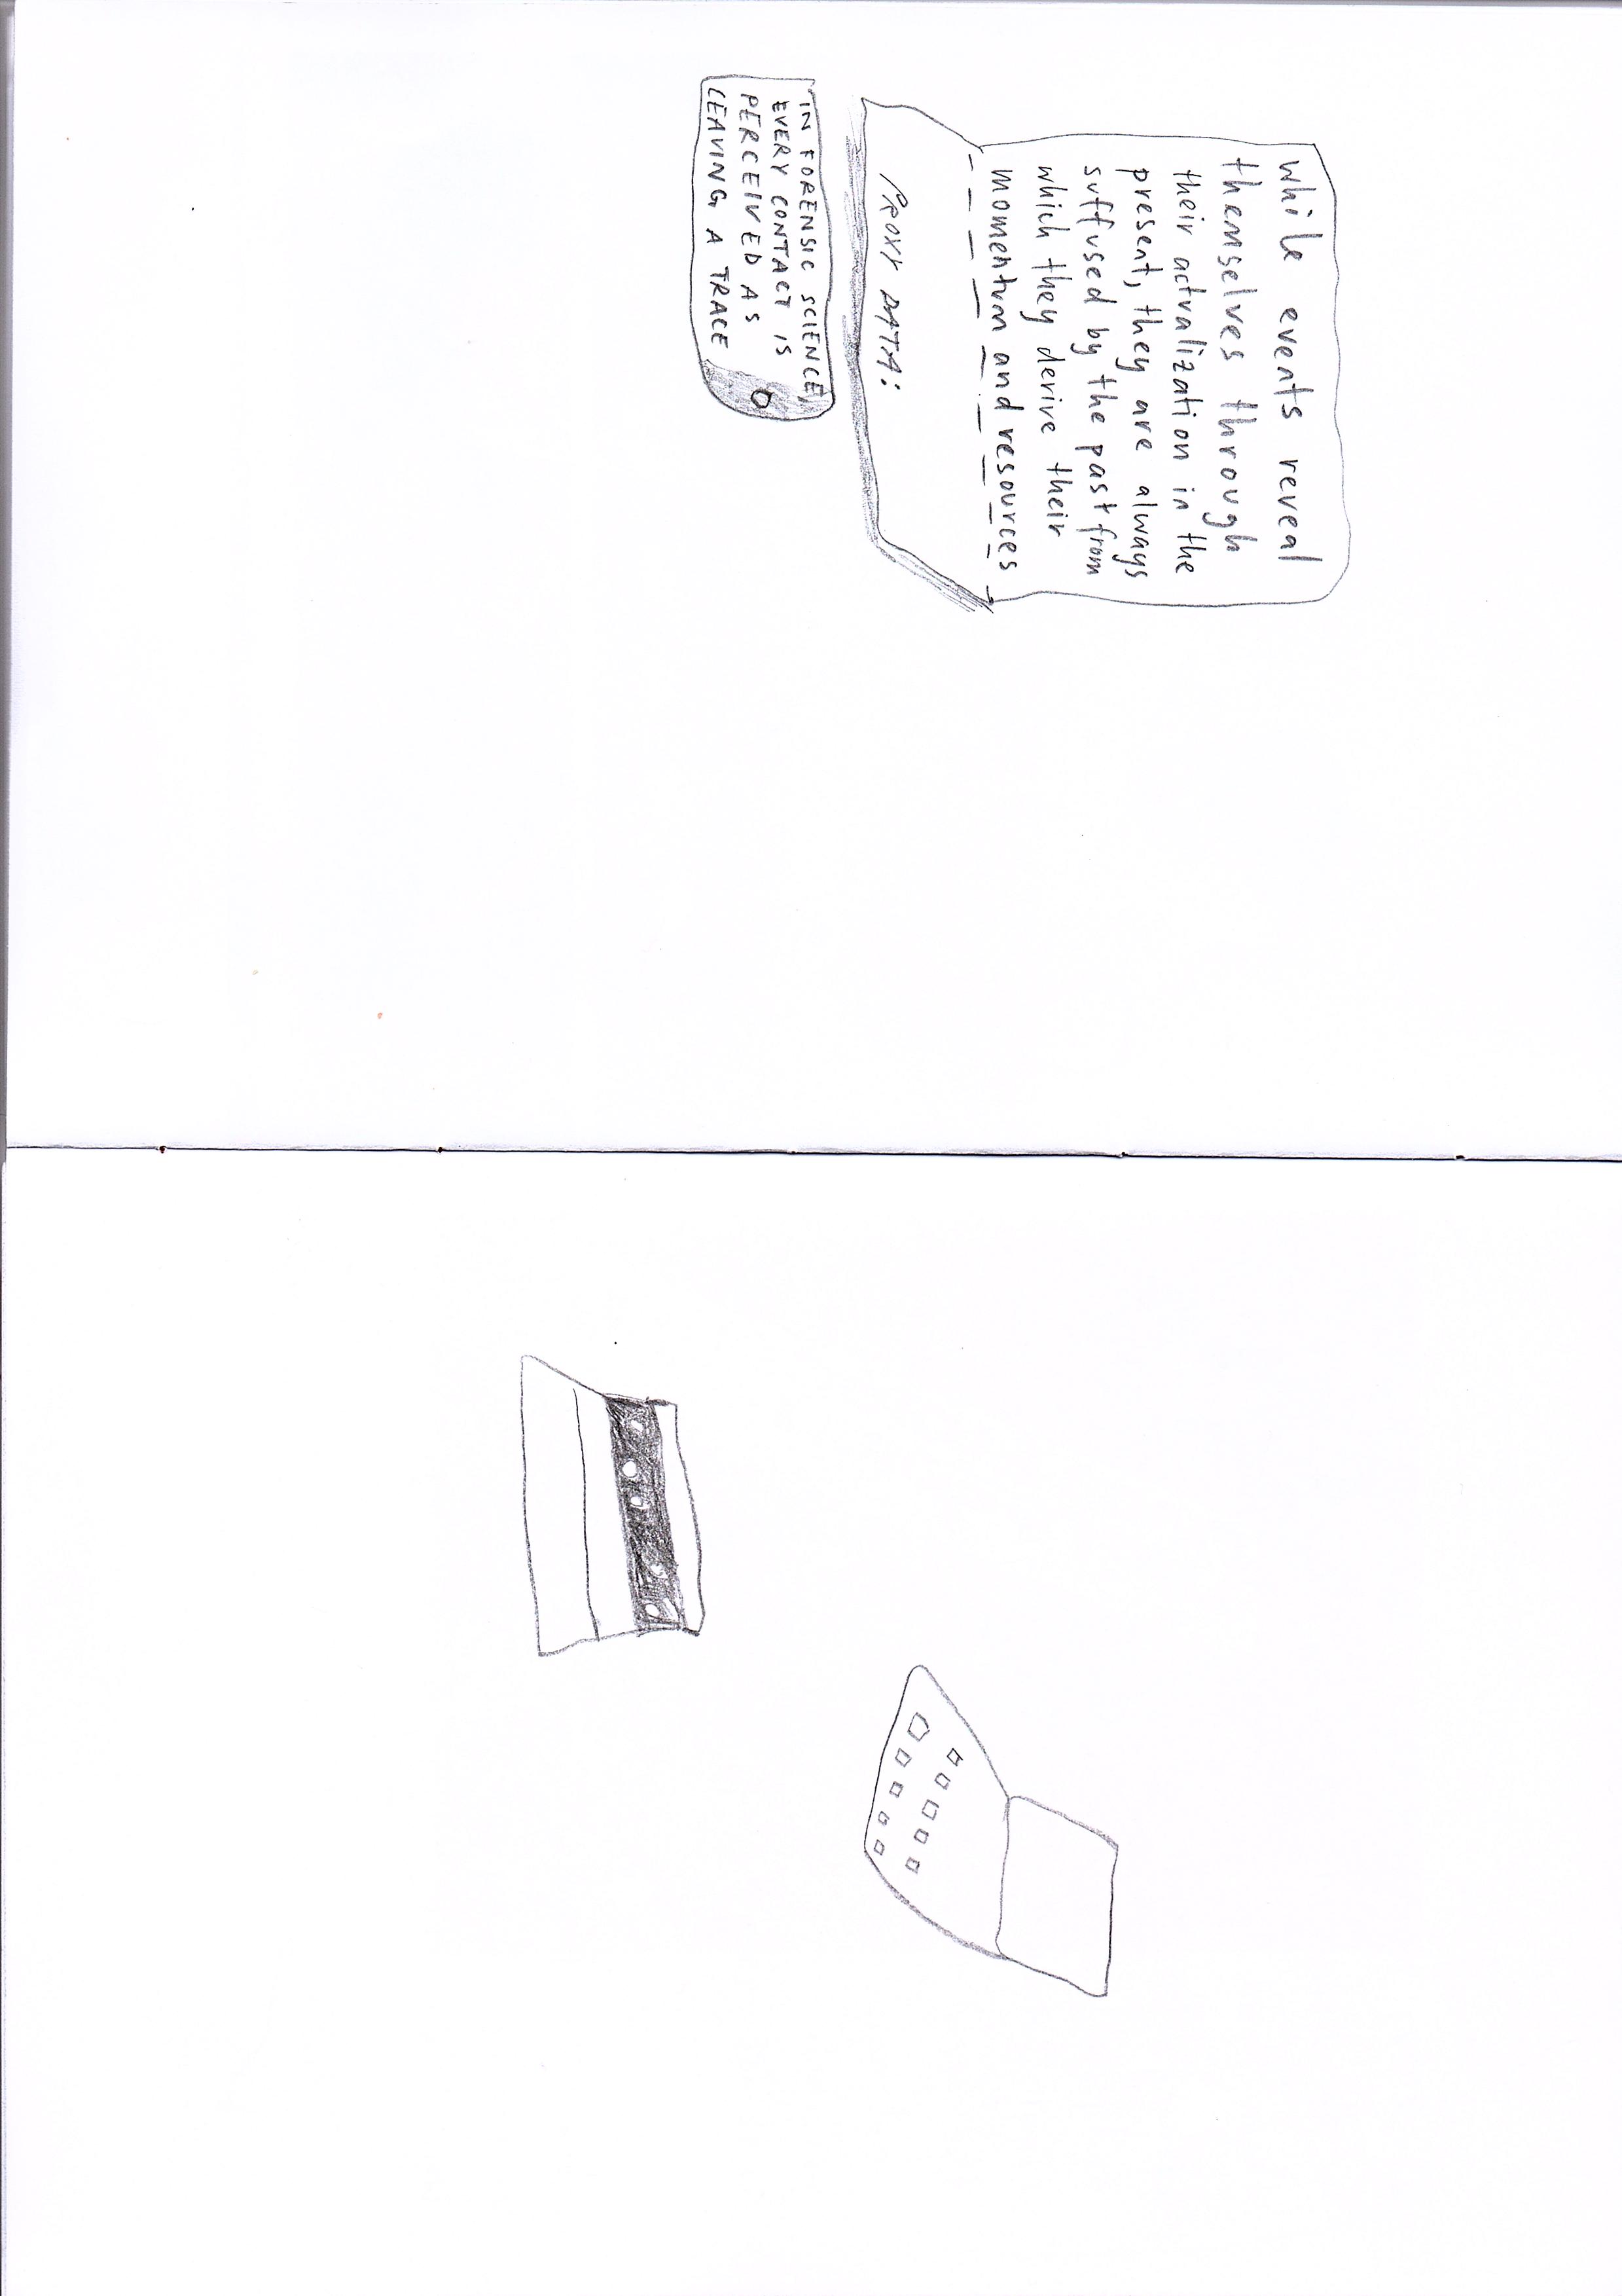 while events reveal
themselves through
their actualization in the
present, they are always
suffused by the past from
which they derive their
momentum and resources
PROXY DATA:
IN FORENSIC SCIENCE,
EVERY CONTACT IS
PERCEIVED AS
LEAVING A TRACE